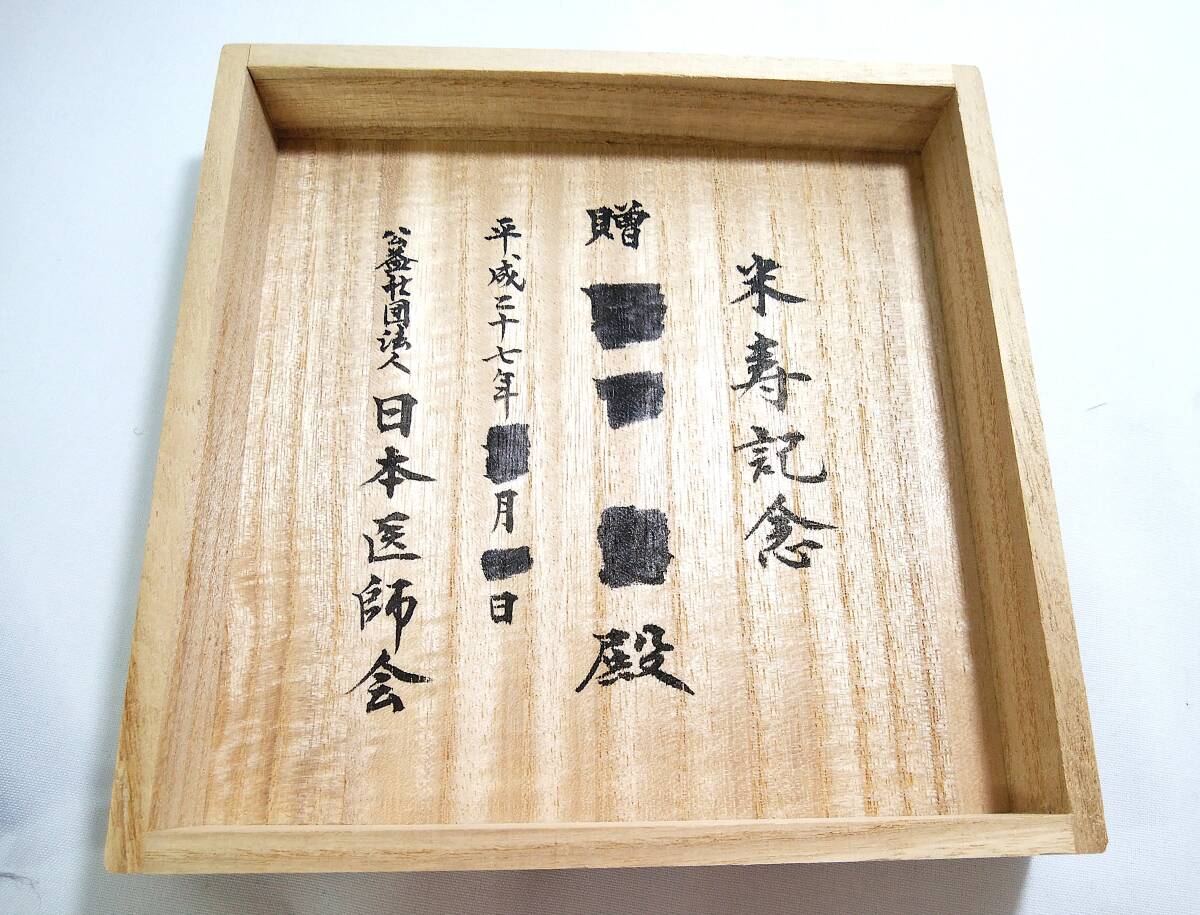 米寿記念
贈 殿
平成二十七年 月 日
公益社団法人 日本医師会